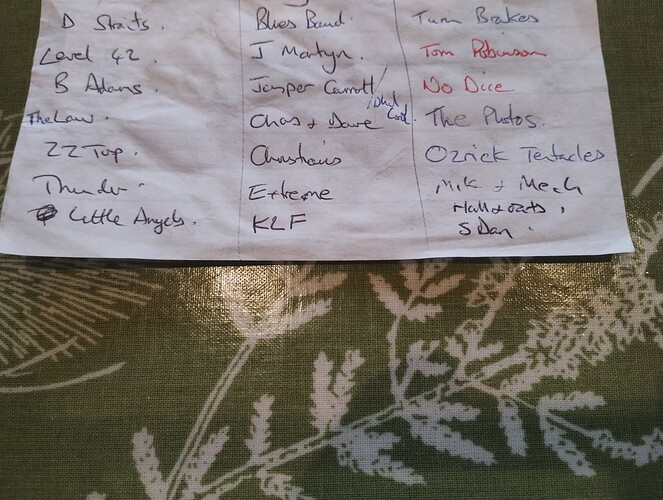 D Straits.
Level 42.
B Adams.
The Law.
ZZ Top.
Thunder.
Little Angels.
Blues Band.
J Martyn.
Jasper Carrott/
Phil Cool.
Chas + Dave
Christians
Extreme
KLF
Turin Brakes
Tom Robinson
No Dice
The Photos.
Ozrick Tentacles
Mik + Mech
Hall + Oats,
S Dan.